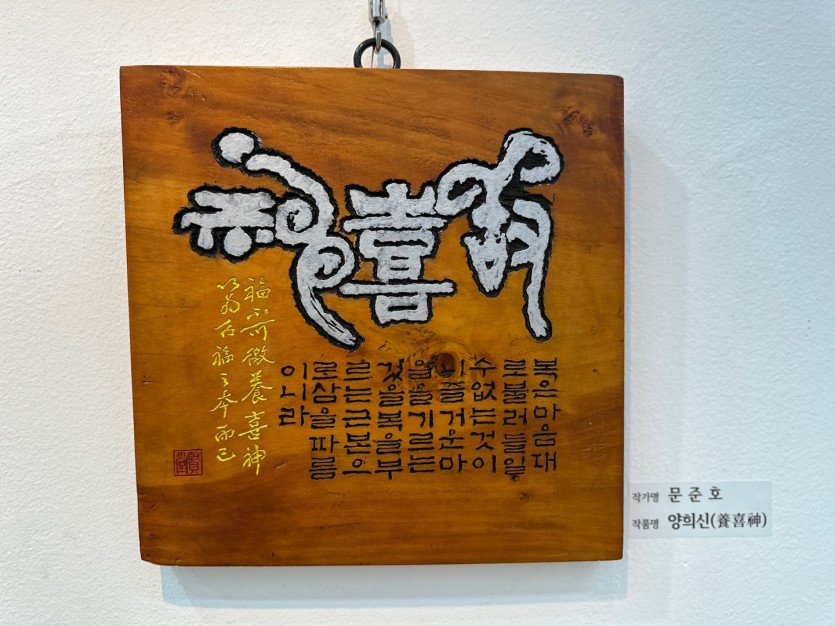 養喜神
복은마음대
로불러들일
수없는것이
니즐거운마
음을기르는
것을복을부
르는근본으
로삼을따름
이니라
福不可徼養喜神
以爲召福之本而已
작가명 문 준 호
작품명 양희신(養喜神)